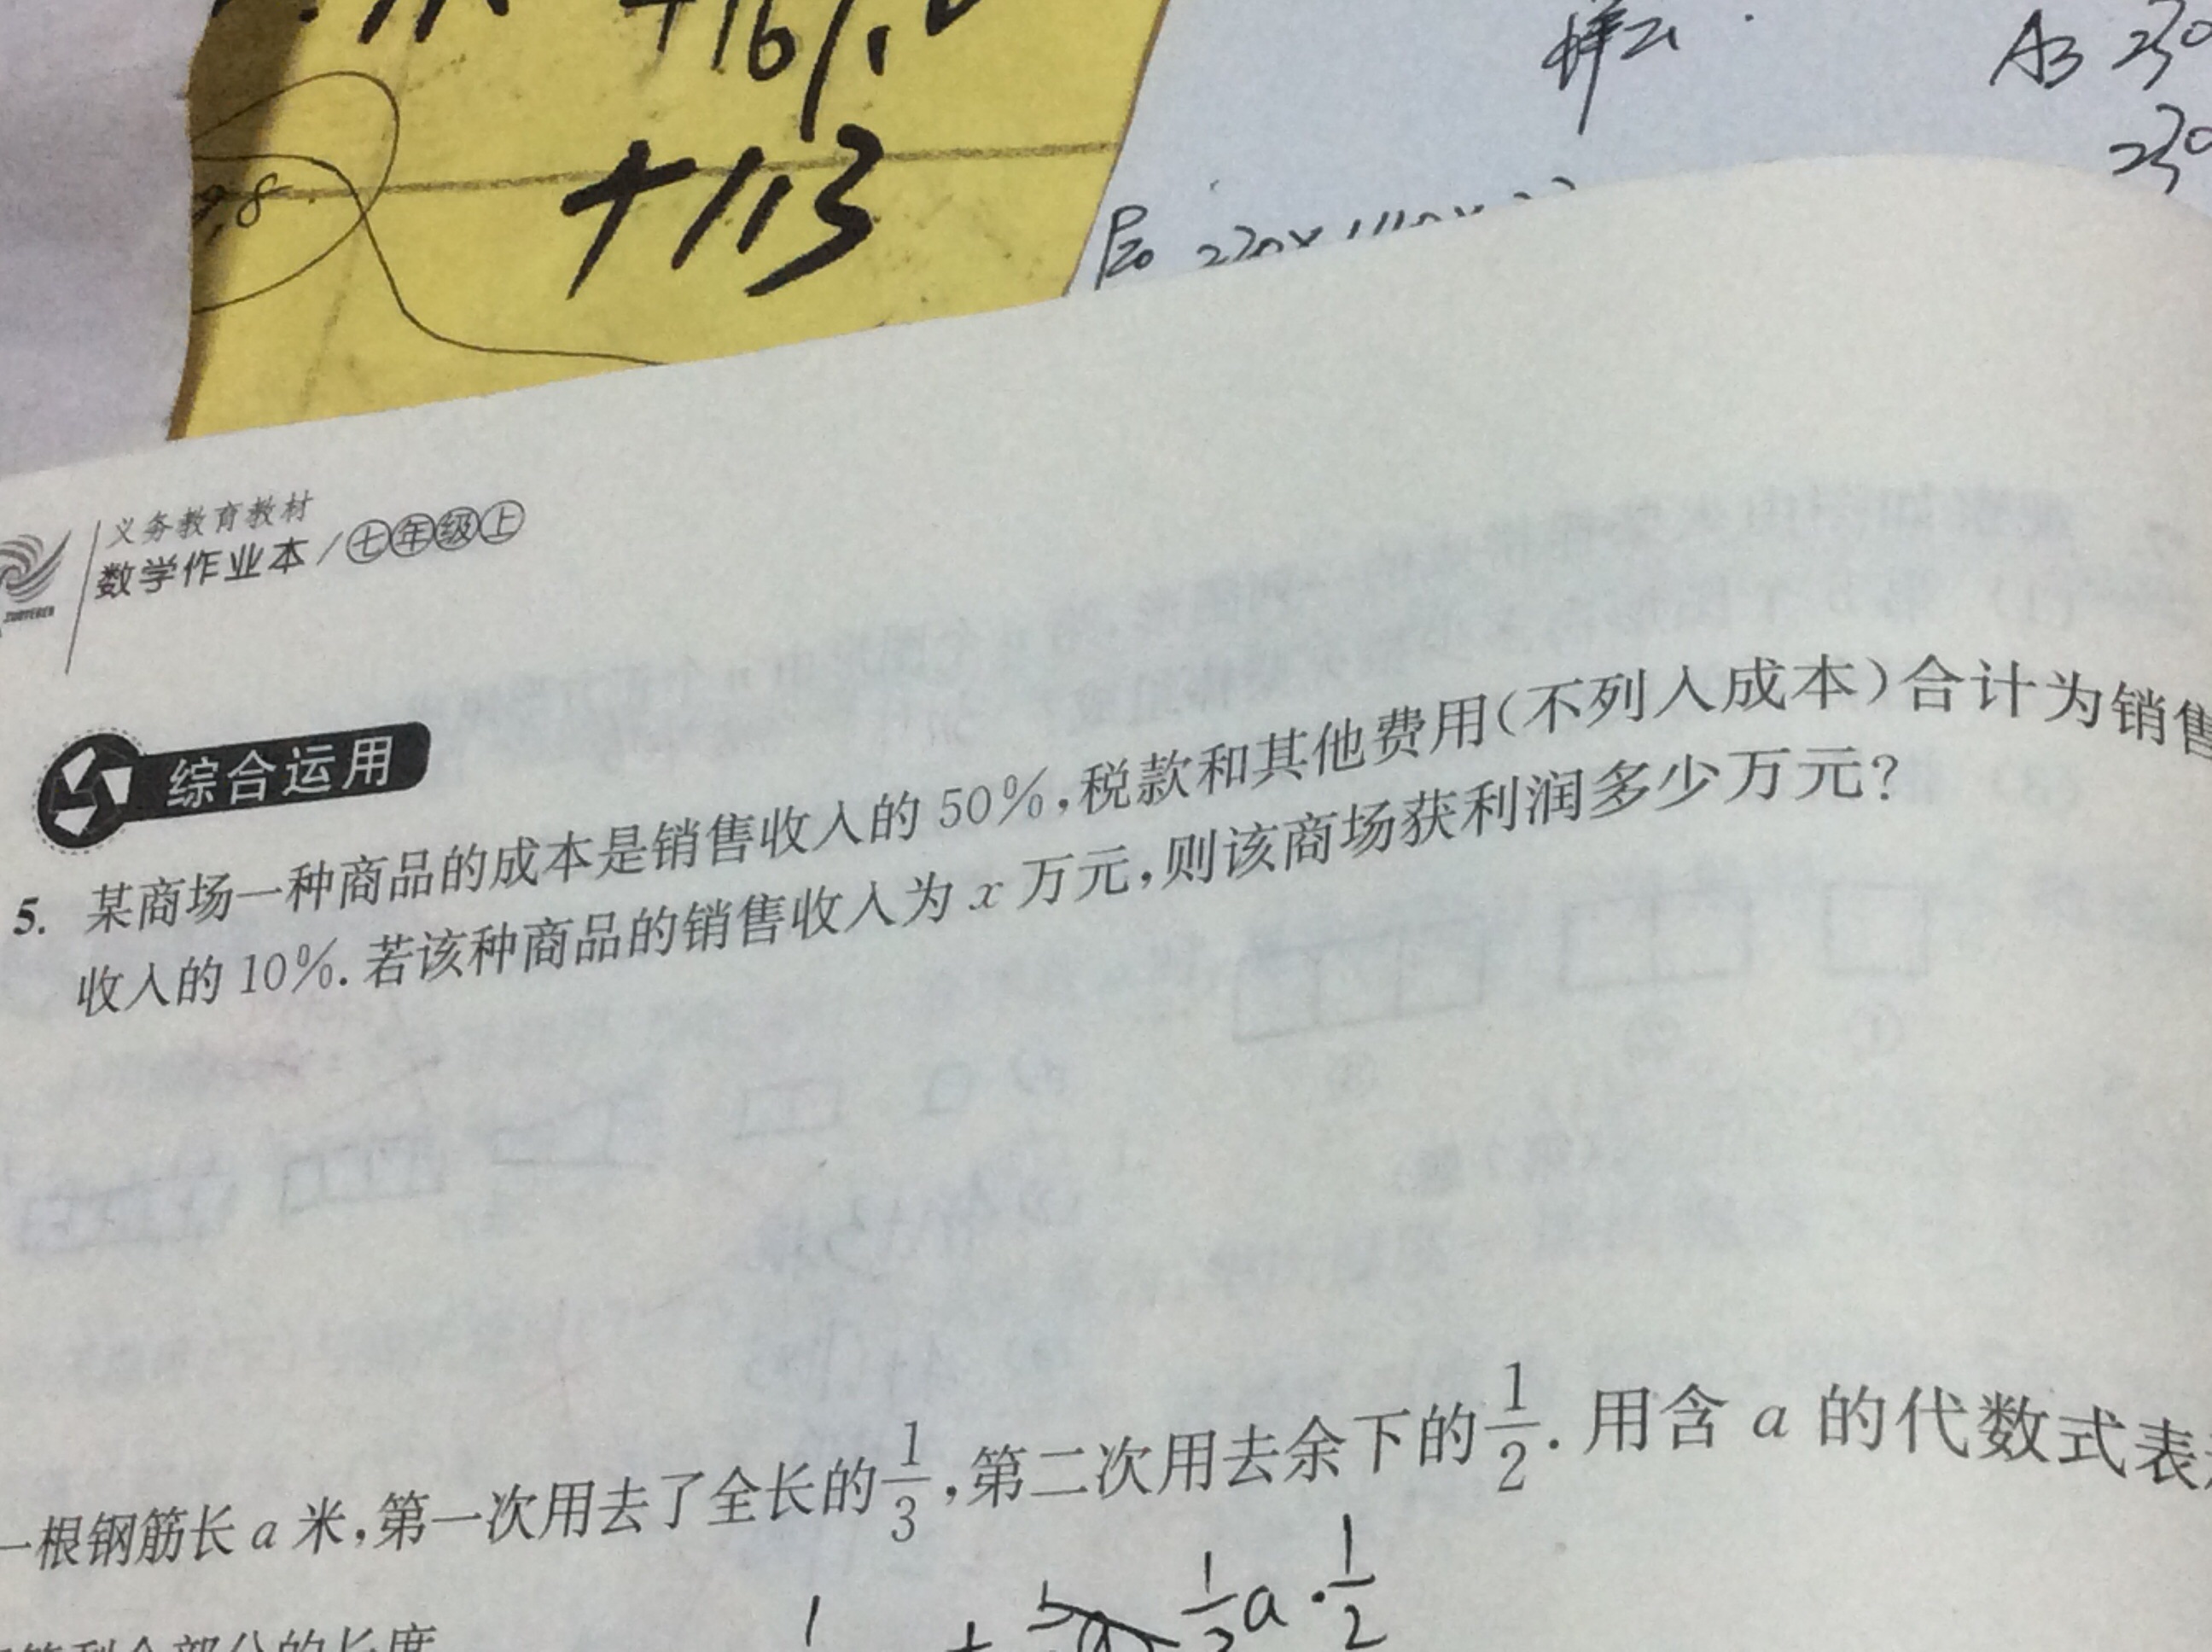 +113
样2.
A3 230
230
9.8
义务教育教材
数学作业本/七年级上
综合运用
5. 某商场一种商品的成本是销售收入的50%,税款和其他费用(不列入成本)合计为销售
收入的10%.若该种商品的销售收入为x万元,则该商场获利润多少万元?
一根钢筋长a米,第一次用去了全长的1/3,第二次用去余下的1/2.用含a的代数式表
部分的长度
a·1/2